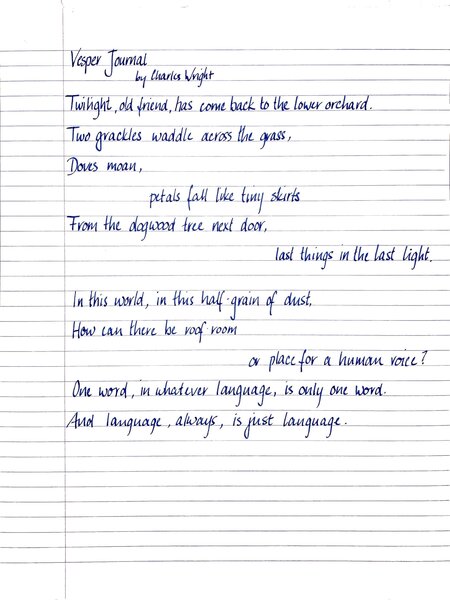 Vesper Journal
by Charles Wright
Twilight, old friend, has come back to the lower orchard.
Two grackles waddle across the grass,
Doves moan,
petals fall like tiny skirts
From the dogwood tree next door,
last things in the last light.
In this world, in this half-grain of dust,
How can there be roof-room
or place for a human voice?
One word, in whatever language, is only one word.
And language, always, is just language.